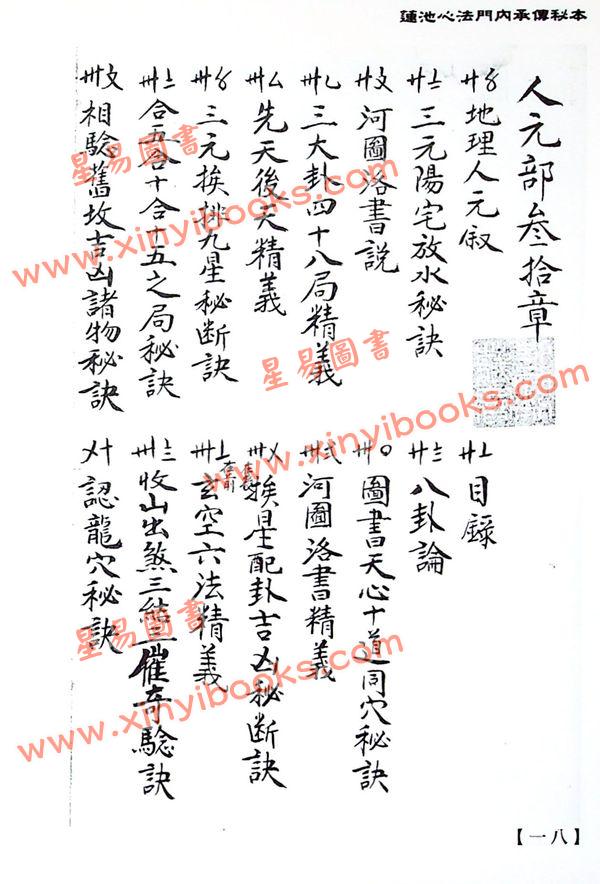 蓮池心法門內承傳秘本
人元部叁拾章
〹〥地理人元叙
〹〦目錄
〹〧三元陽宅放水秘訣
〹〨八卦論
〹〩河圖洛書説
〺〇圖書天心十道同穴秘訣
〺〡三大卦四十八局精義
〺〢河圖洛書精義
〺〣先天後天精義
〺〤挨星配卦吉凶秘断訣
〺〥三元挨排九星秘断訣
〺〦玄空六法精義
〺〧合五合十合十五之局秘訣
〺〨收山出煞三盤催奇驗訣
〺〩相驗舊坟吉凶諸物秘訣
〤十認龍穴秘訣
【一八】
星易圖書
www.xinyibooks.com
星易圖書
www.xinyibooks.com
星易圖書
www.xinyibooks.com